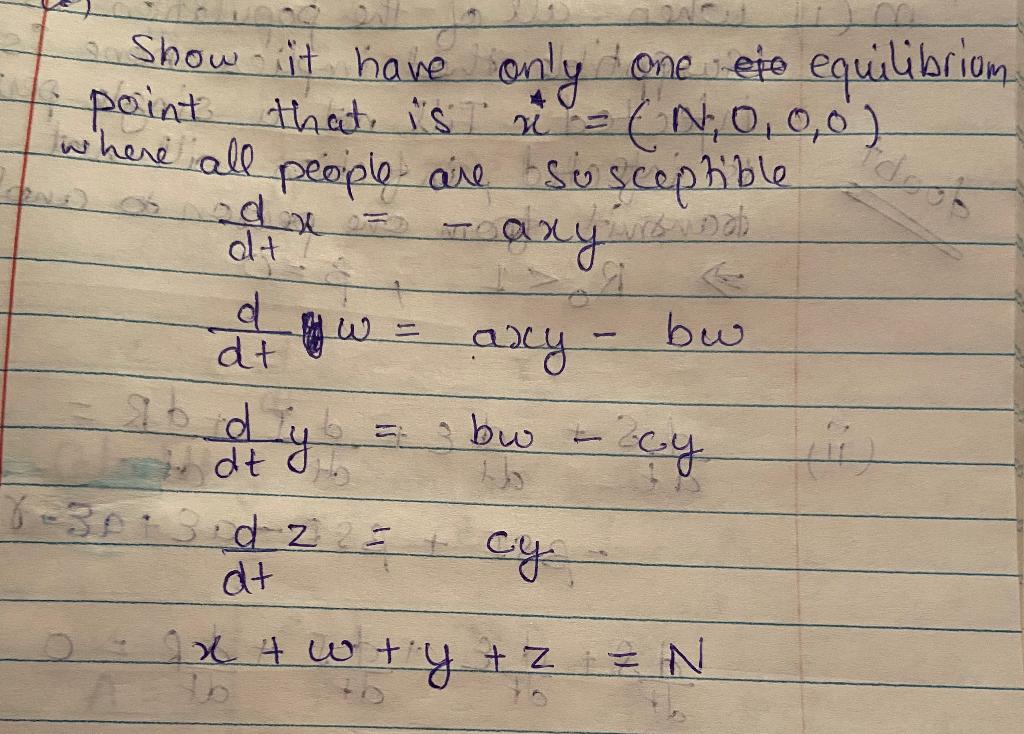 Show it have only one equilibriom
point that is x* = (N, 0, 0, 0)
where all people are susceptible
d/dt x = - axy
d/dt w = axy - bw
d/dt y = bw - cy
d/dt z = cy
x + w + y + z = N